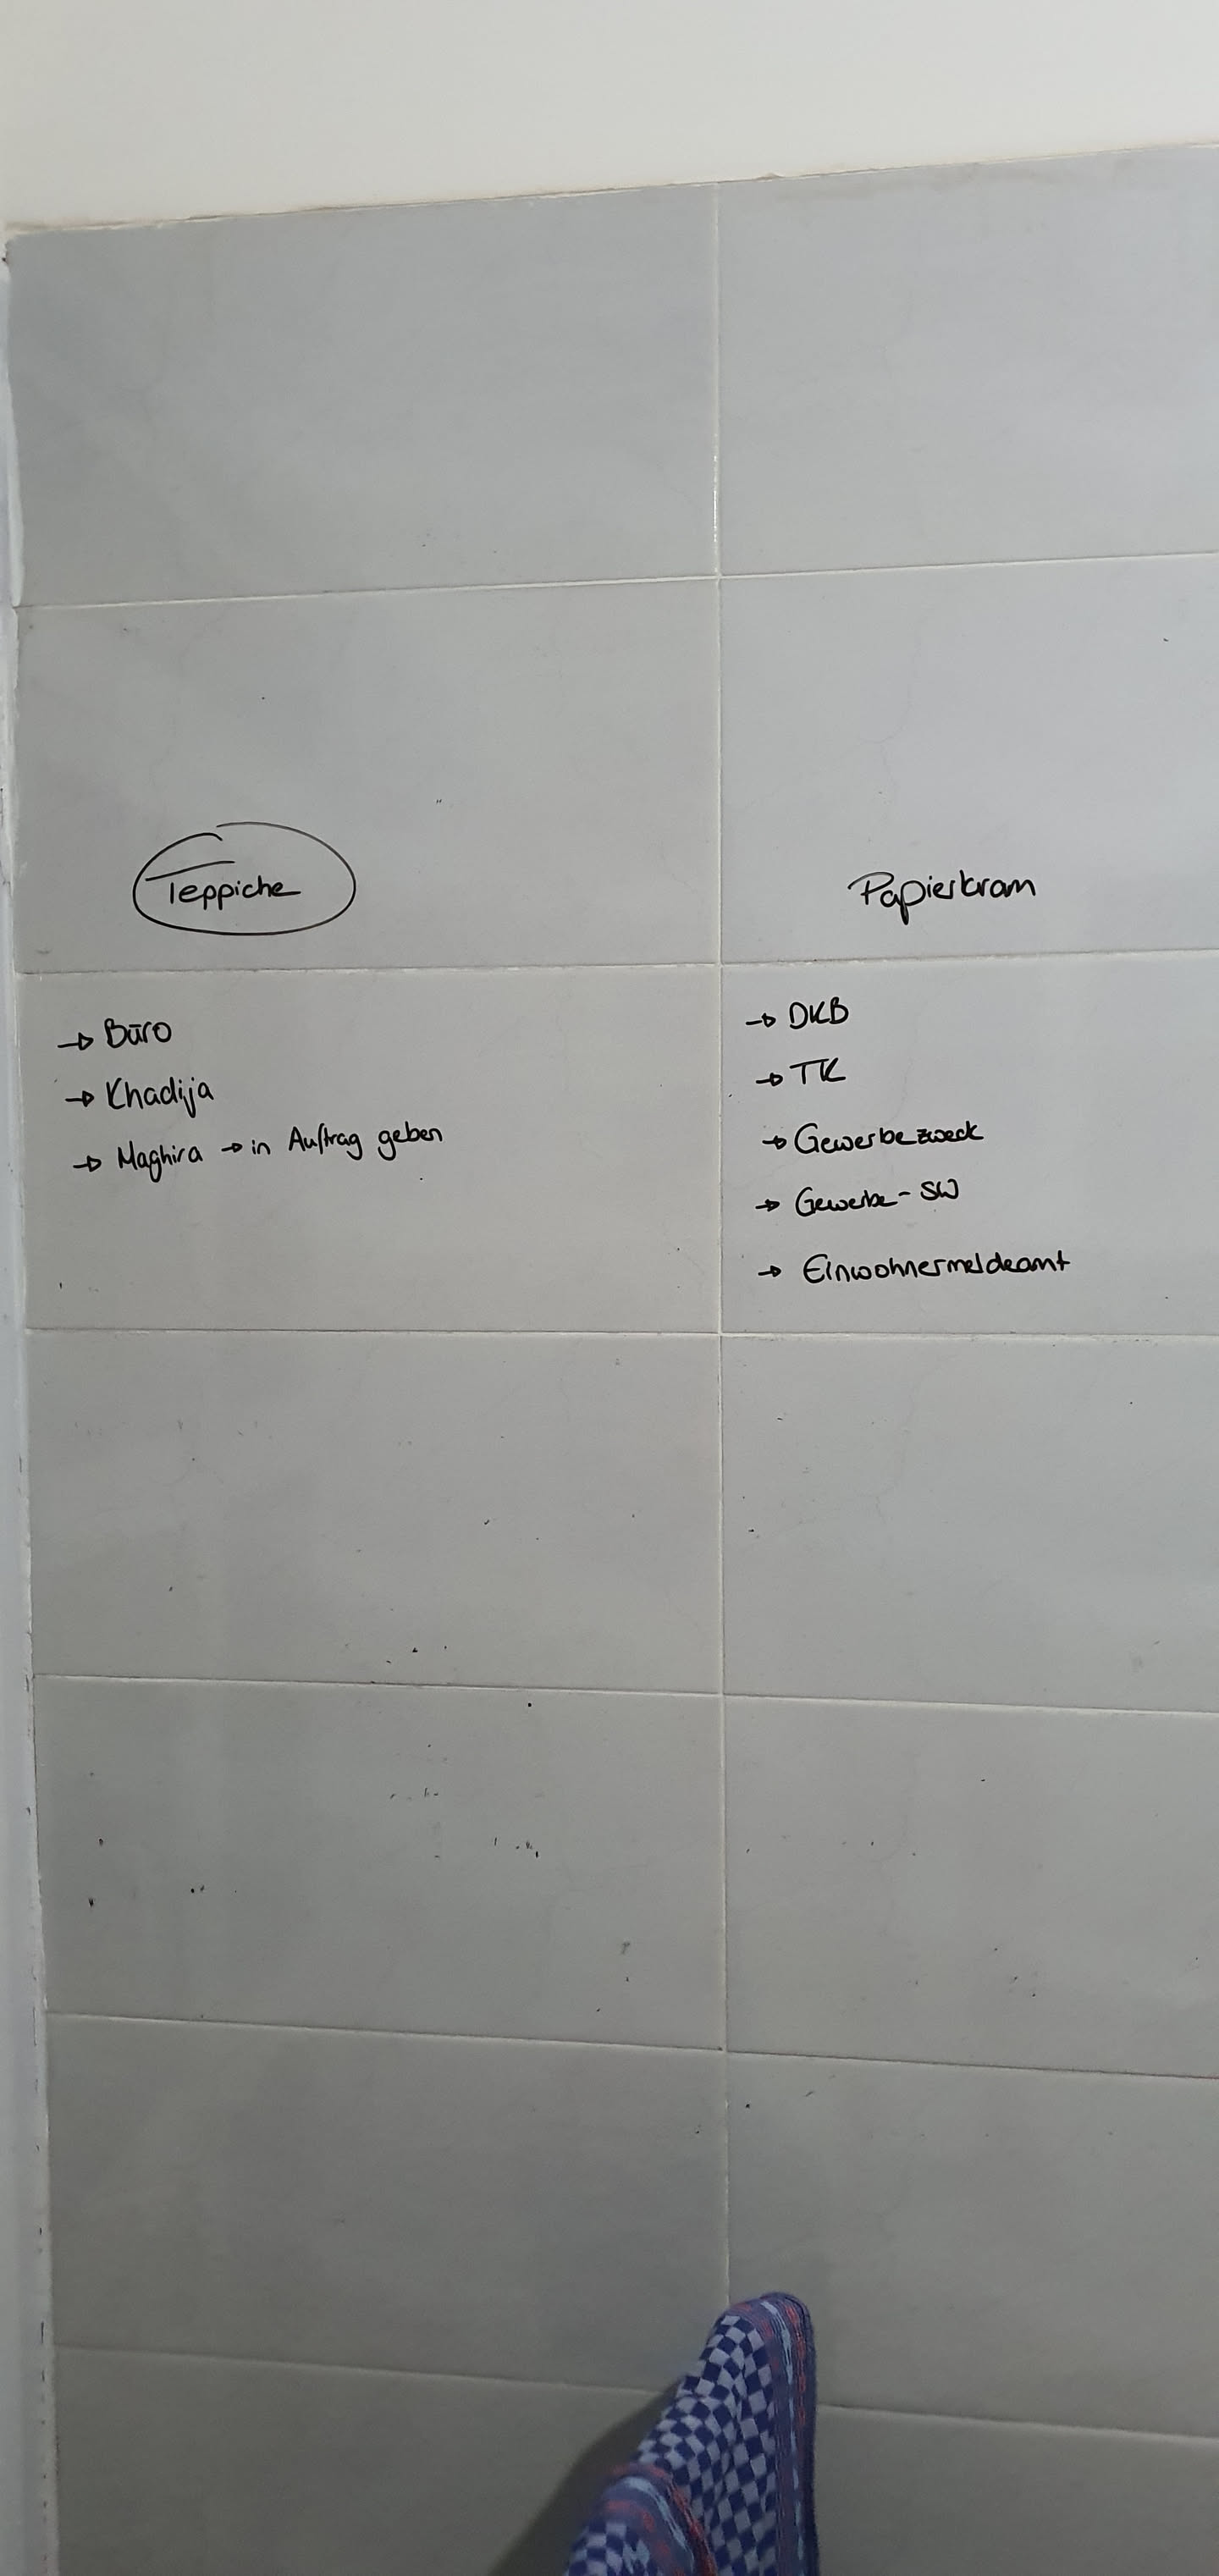 Teppiche
→ Büro
→ Khadija
→ Maghira → in Auftrag geben
Papierkram
→ DKB
→ TK
→ Gewerbezweck
→ Gewerbe-SW
→ Einwohnermeldeamt